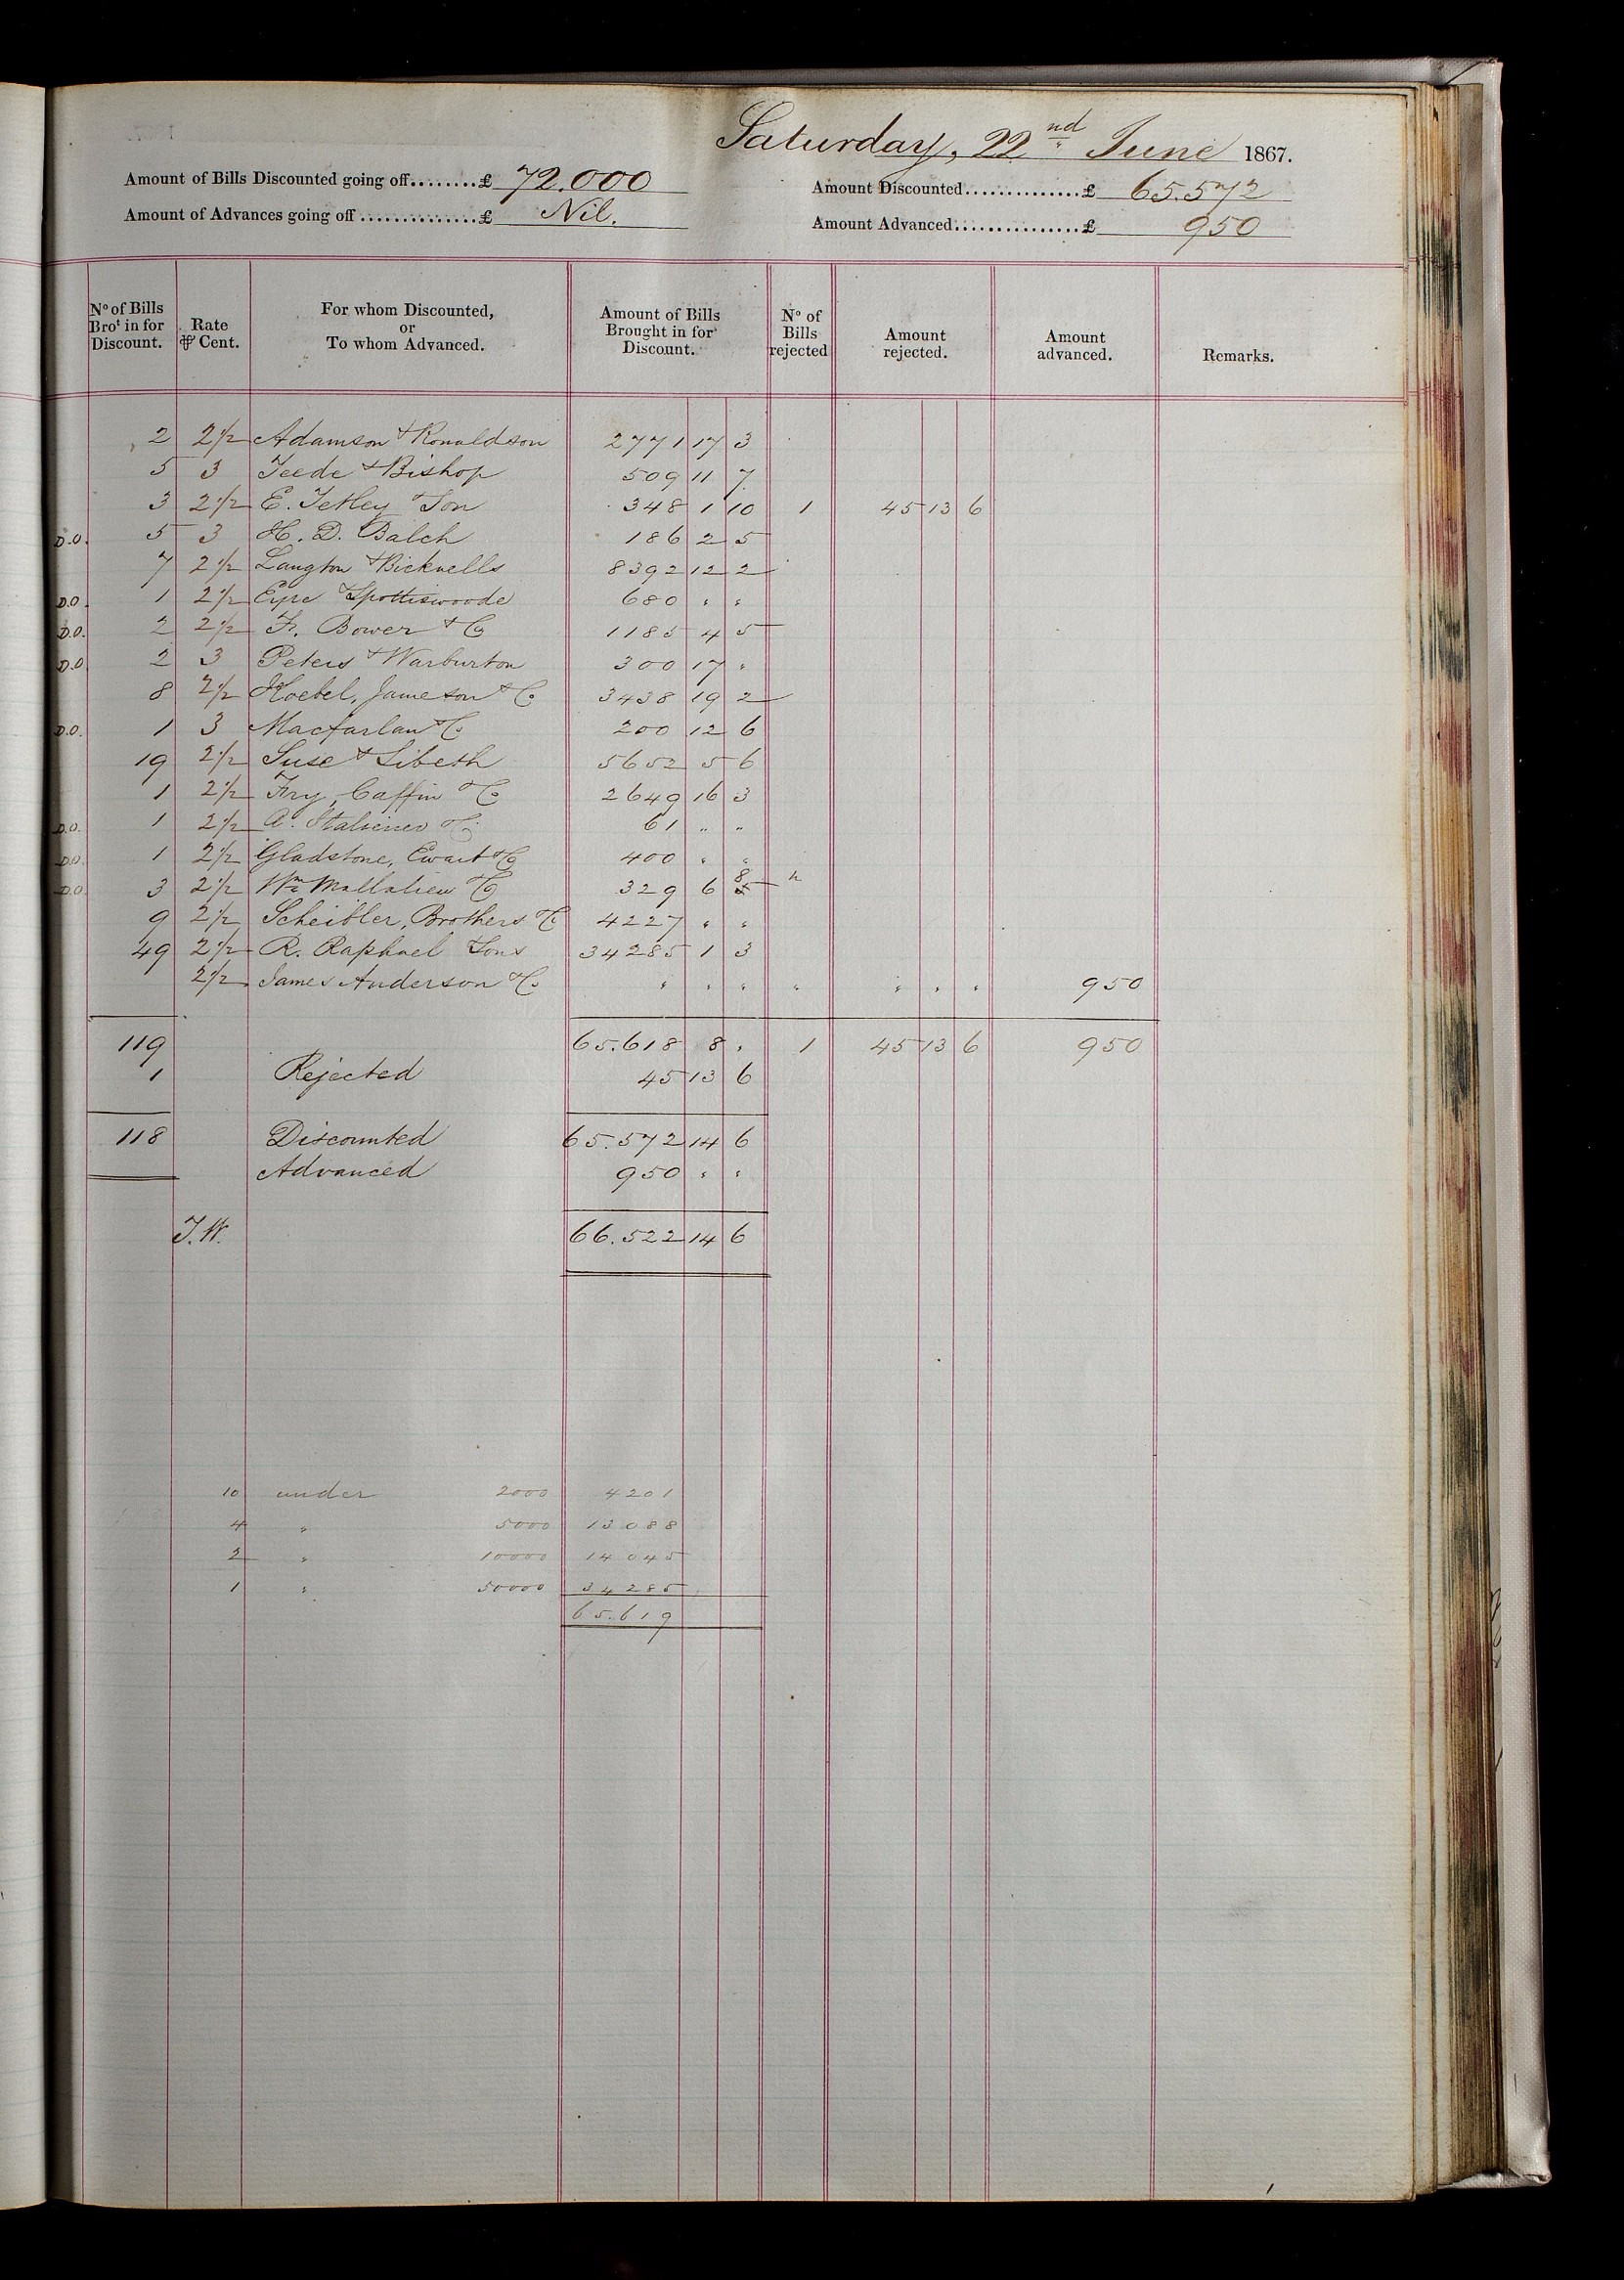 Saturday, 22nd June 1867.
Amount of Bills Discounted going off........£ 72.000
Amount Discounted..............£ 65.572
Amount of Advances going off ...............£ Nil.
Amount Advanced................£ 950
No of Bills Brot in for Discount. Rate ⅌ Cent. For whom Discounted, or To whom Advanced. Amount of Bills Brought in for Discount. No of Bills rejected Amount rejected. Amount advanced. Remarks.
2 2½ Adamson & Ronaldson 2771 17 3
5 3 Teede & Bishop 509 11 7
3 2½ E. Tetley & Son 348 1 10 1 45 13 6
D.O. 5 3 H. D. Balch 186 2 5
7 2½ Langton & Bicknells 8392 12 2
D.O. 1 2½ Eyre & Spottiswoode 680 " "
D.O. 2 2½ Fr. Bower & Co 1185 4 5
D.O 2 3 Peters & Warburton 300 17 "
8 2½ Jameson & Co 3438 19 2
D.O. 1 3 Macfarlan & Co 200 12 6
19 2½ Suse & Sibeth 5652 5 6
1 2½ Fry, Caffin & Co 2649 16 3
D.O. 1 2½ A. & Co 61 " "
D.O. 1 2½ Gladstone, Ewart & Co 400 " "
D.O. 3 2½ Wm Mallalieu & Co 329 6 8
9 2½ Scheibler, Brothers & Co 4227 " "
49 2½ R. Raphael & Sons 34285 1 3
2½ James Anderson & Co " " " " " " " 950
119 65.618 8 " 1 45 13 6 950
1 Rejected 45 13 6
118 Discounted 65.572 14 6
Advanced 950 " "
J.W. 66.522 14 6
10 under 2000 4201
4 " 5000 13088
2 " 10000 14045
1 " 50000 34285
65.619